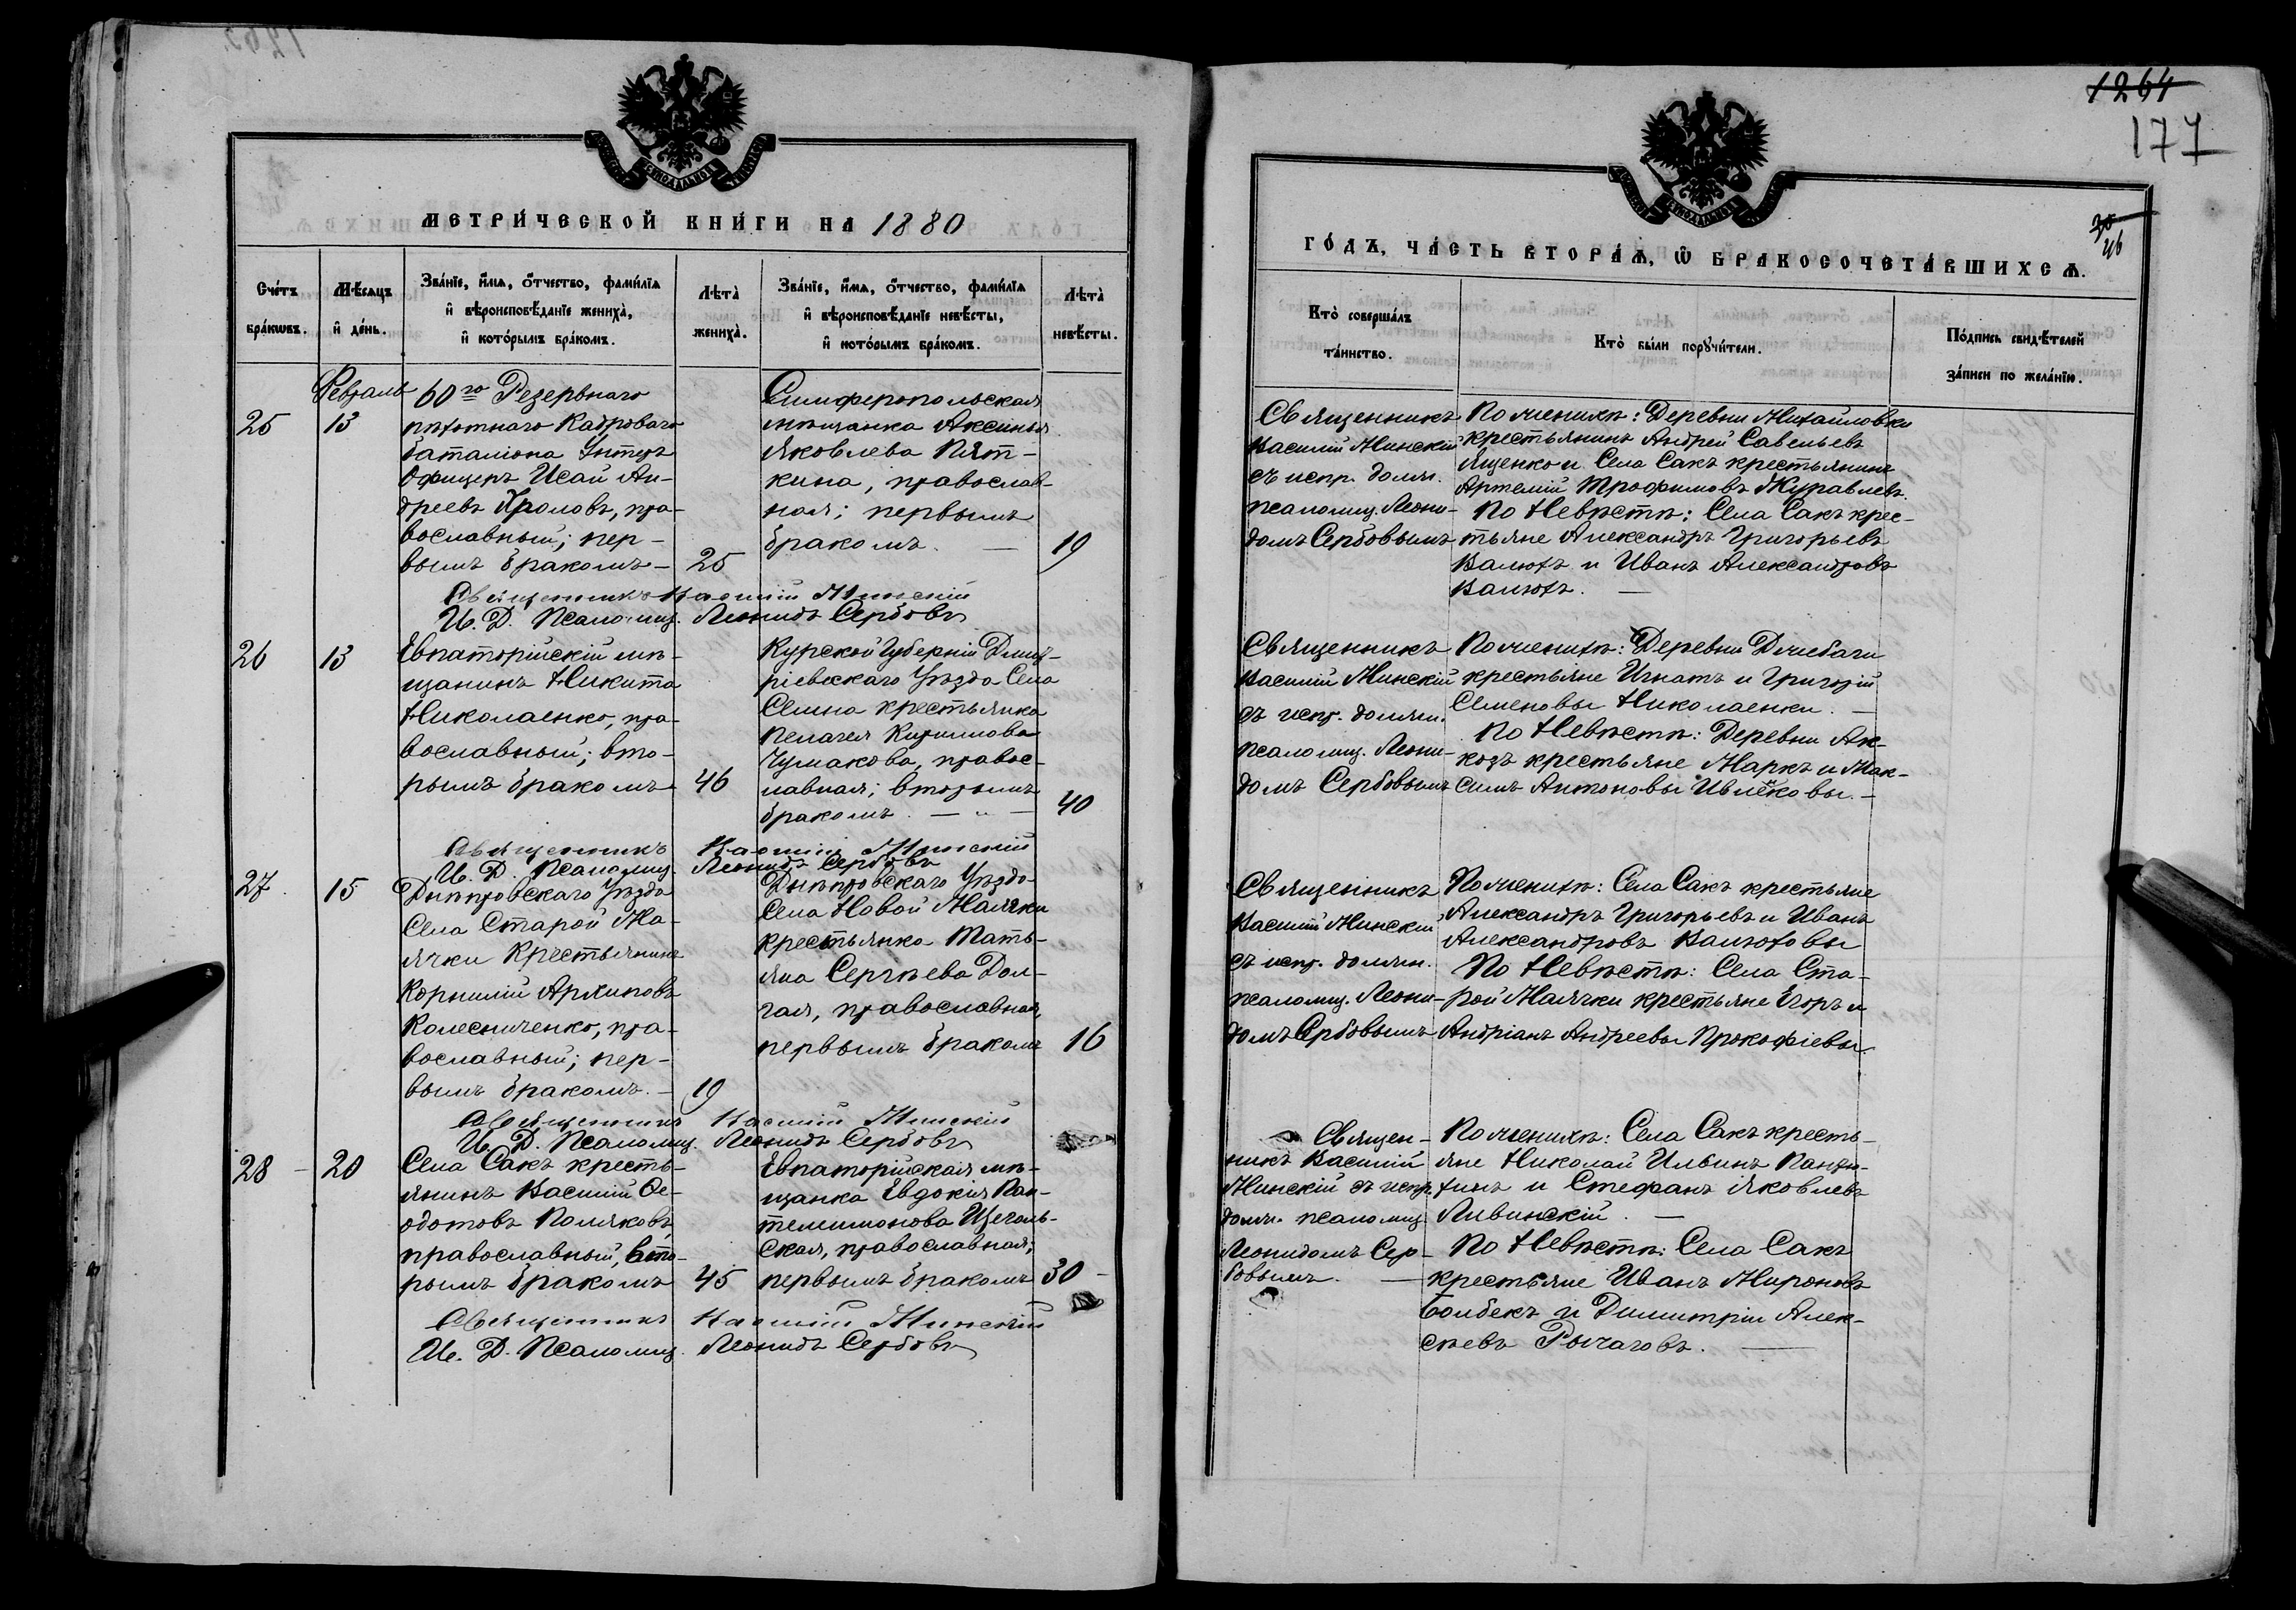 МЕТРИ́ЧЕСКОЙ КНИ́ГИ НА 1880
Сче́тъ бра́кωвъ.
Мѣ́сяцъ и де́нь.
Зва́нїе, и́мя, о́тчество, фами́лїя
и вѣроисповѣ́данїе жениха̀,
и кото́рымъ бра́комъ.
Лѣта̀ жениха̀.
Зва́нїе, и́мя, о́тчество, фами́лїя
и вѣроисповѣ́данїе невѣ́сты,
и кото́рымъ бра́комъ.
Лѣта̀ невѣ́сты.
Февраль
25
13
60го Резервнаго
пѣхотнаго Кадроваго
баталіона Унтеръ
Офицеръ Исай Ан-
дреевъ Фроловъ, пра-
вославный; пер-
вымъ бракомъ –
25
Симферопольская
мѣщанка Аксинья
Яковлева Пят-
кина, православ-
ная; первымъ
бракомъ. —
19
Священникъ Василій Минскій
И. Д. Псаломщ. Леонидъ Сербовъ
26
13
Евпаторійскій мѣ-
щанинъ Никита
Николаенко, пра-
вославный; вто-
рымъ бракомъ
46
Курской Губерніи Дмит-
ріевскаго Уѣзда Села
Селина крестьянка
Пелагея Кириллова
Чумакова, правос-
лавная; вторымъ
бракомъ. — „ —
40
Священникъ Василій Минскій
И. Д. Псаломщ. Леонидъ Сербовъ
27.
15
Днѣпровскаго Уѣзда
Села Старой Ма-
ячки Крестьянинъ
Корнилій Архиповъ
Колесниченко, пра-
вославный; пер-
вымъ бракомъ. –
19
Днѣпровскаго Уѣзда
Села Новой Маячки
крестьянка Тать-
яна Сергѣева Дол-
гая, православная,
первымъ бракомъ
16
Священникъ Василій Минскій
И. Д. Псаломщ. Леонидъ Сербовъ
28 –
20
Села Сакъ кресть-
янинъ Василій Ѳе-
одотовъ Поляковъ,
православный, вто-
рымъ бракомъ
45
Евпаторійская мѣ-
щанка Евдокія Пан-
телеимонова Щеголь-
ская, православная;
первымъ бракомъ
30 –
Священникъ Василій Минскій
И. Д. Псаломщ. Леонидъ Сербовъ
1264
177
ГО́ДЪ, ЧА́СТЬ ВТОРА́Я, Ѿ БРАКОСОЧЕТА́ВШИХСЯ.
46
Кто̀ соверша́лъ та́инство.
Кто̀ бы́ли поручи́тели.
По́дпись свидѣ́телей
за́писи по жела́нїю.
Священникъ
Василій Минскій
съ испр. должн.
псаломщ. Леони-
домъ Сербовымъ
По женихѣ: Деревни Михайловки
крестьянинъ Андрей Савельевъ
Ященко и Села Сакъ крестьянинъ
Артемій Трофимовъ Журавлевъ.
По Невѣстѣ: Села Сакъ крес-
тьяне Александръ Григорьевъ
Валюхъ и Иванъ Александровъ
Валюхъ. —
Священникъ
Василій Минскій
съ испр. должн.
псаломщ. Леони-
домъ Сербовымъ
По женихѣ: Деревни Джебачи
крестьяне Игнатъ и Григорій
Семеновы Николаенки. —
По Невѣстѣ: Деревни Ак-
козъ крестьяне Маркъ и Мак-
симъ Антоновы Ивлековы. –
Священникъ
Василій Минскій
съ испр. должн.
псаломщ. Леони-
домъ Сербовымъ
По женихѣ: Села Сакъ крестьяне
Александръ Григорьевъ и Иванъ
Александровъ Валюховы
По Невѣстѣ: Села Ста-
рой Маячки крестьяне Егоръ и
Андріанъ Андреевы Прокофіевы.
Священ-
никъ Василій
Минскій съ испр.
должн. псаломщ.
Леонидомъ Сер-
бовымъ. —
По женихѣ: Села Сакъ кресть-
яне Николай Ильинъ Панфи-
хинъ и Стефанъ Яковлевъ
Ливинскій. —
По Невѣстѣ: Села Сакъ
крестьяне Иванъ Мироновъ
Болбекъ и Димитрій Алек-
сѣевъ Рычаговъ. —